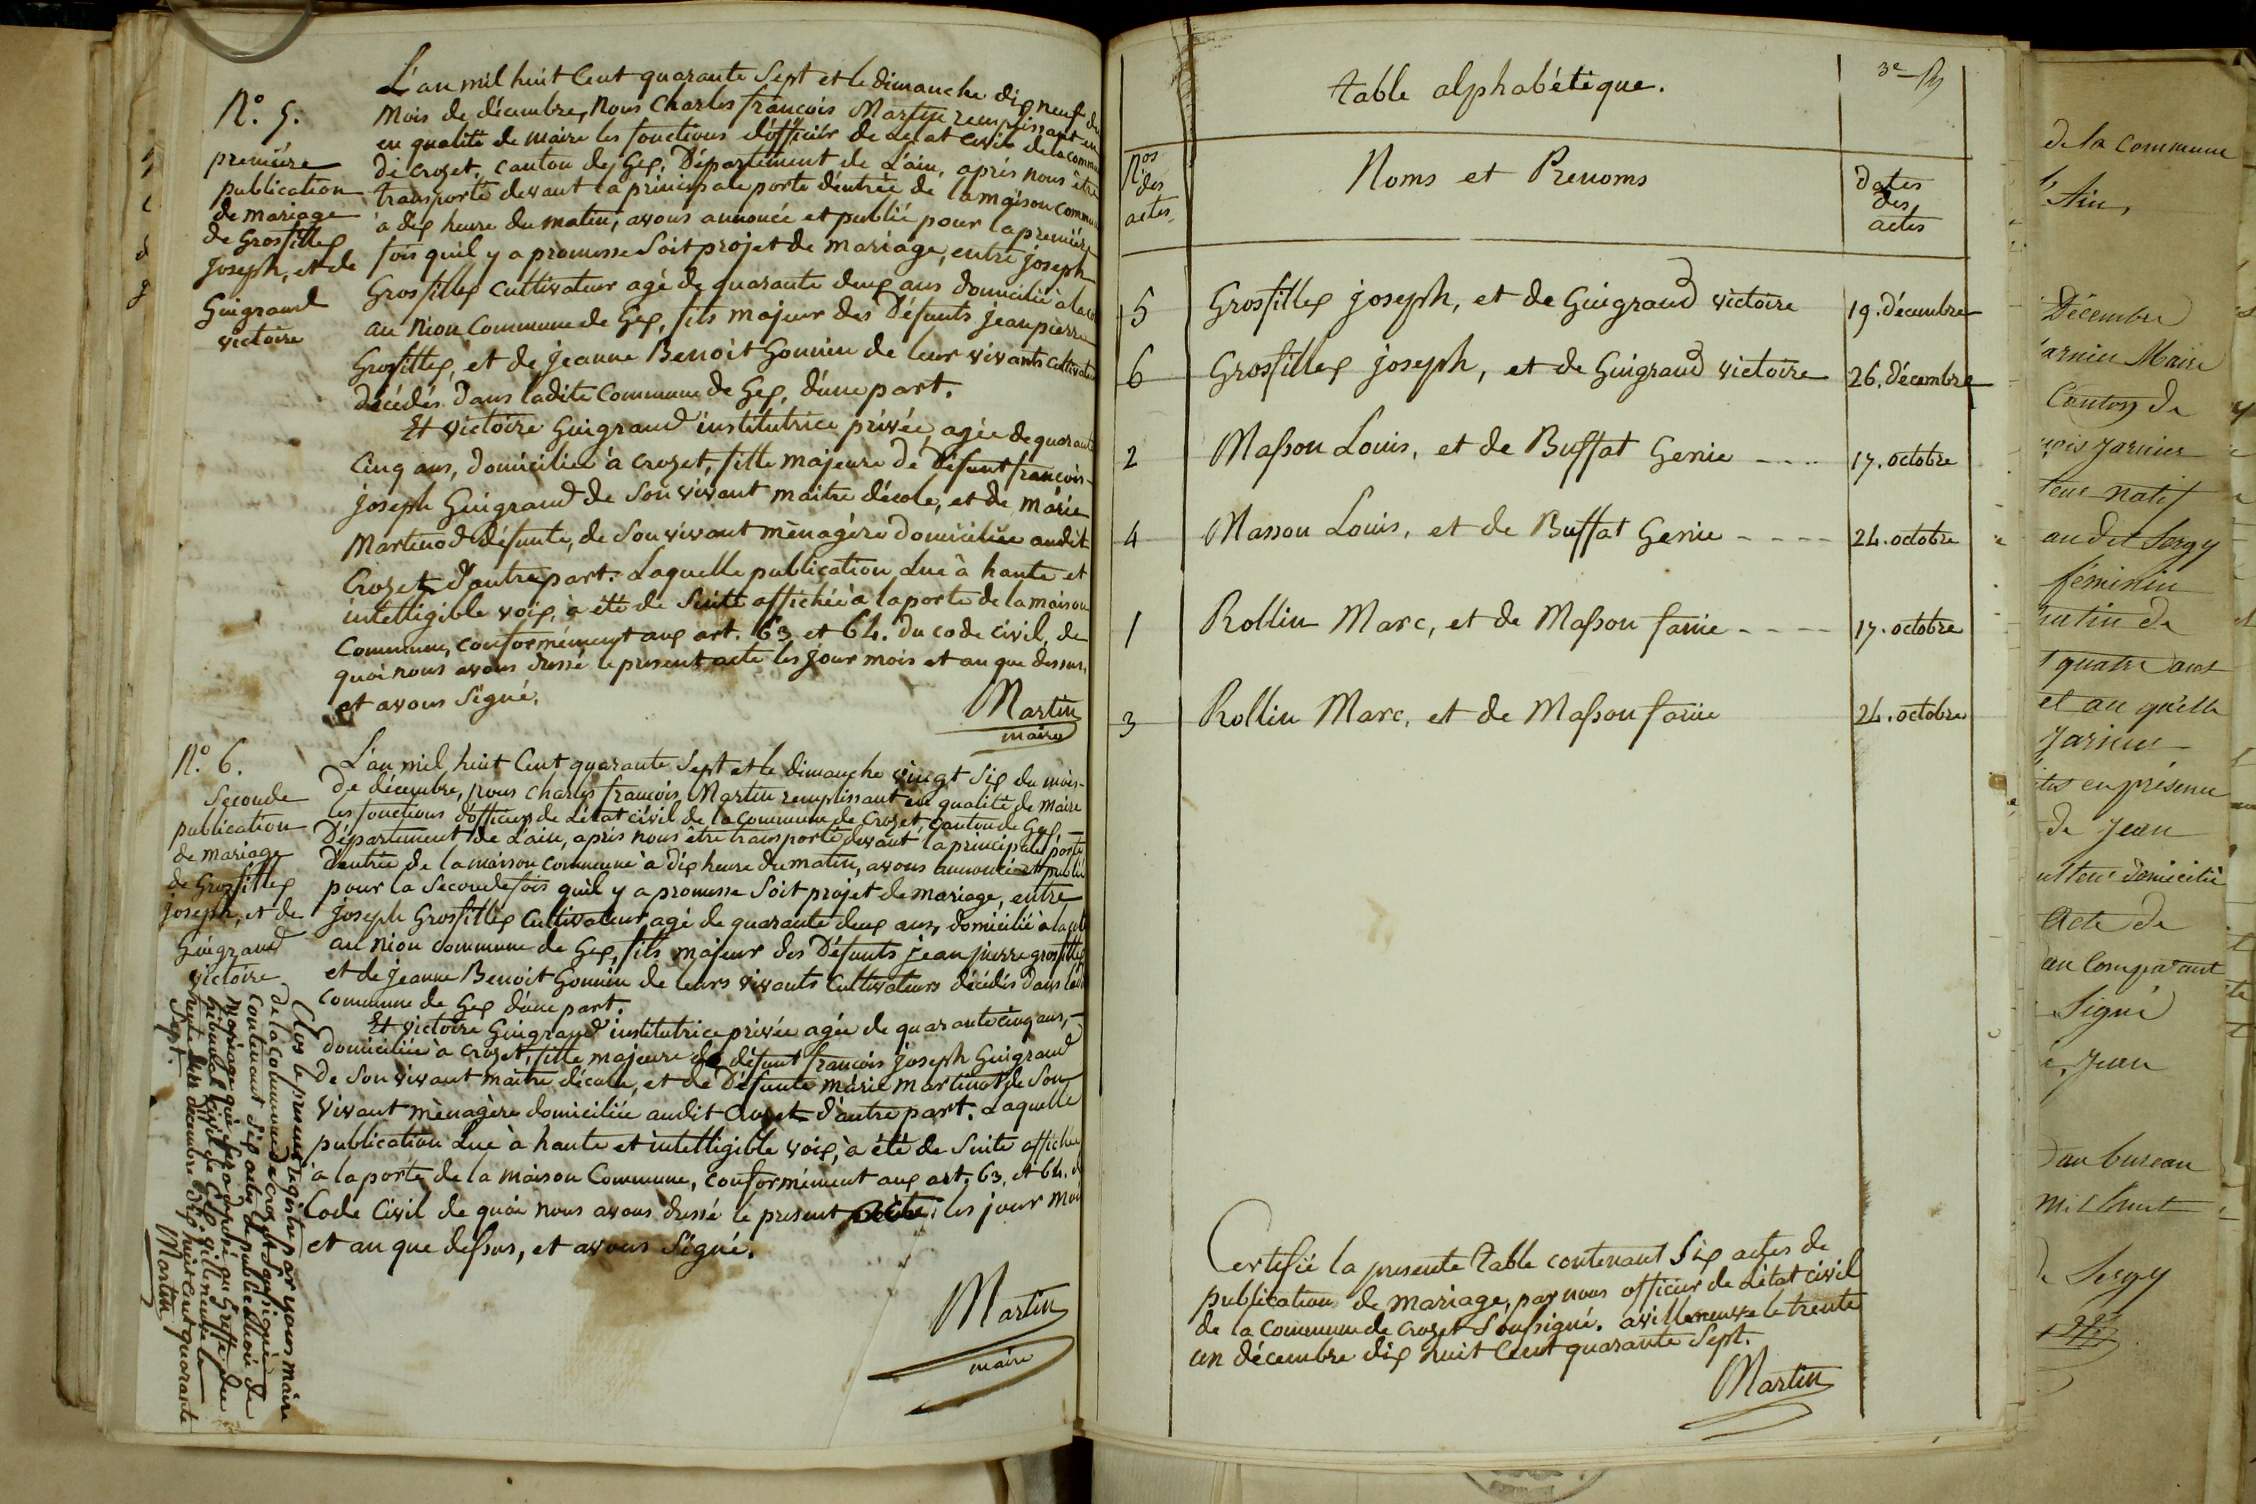 N.º 5.
première
publication
de mariage
de Grosfillex
joseph, et de
Guigraud
victoire
L'an mil huit Cent quarante Sept et le dimanche dix neuf du
Mois de décembre, Nous Charles françois Martin remplissant en
en qualité de maire les fonctions d'officier de L'état civil de la commune
de crozet, canton de Gex, Département de L'ain, après nous être
transporté devant la principale porte d'entrée de la maison commune
à dix heure du matin, avons annoncé et publié pour la première
fois quil y a promesse Soit projet de mariage, entre joseph
Grosfillex cultivateur agé de quarante deux ans domicilié à la
au Nion Commune de Gex, fils majeur des Défunts jean pierre
Grosfillex, et de jeanne Benoit Gonnin de leur vivants cultivateurs
décédés dans ladite Commune de Gex, d'une part.
Et victoire Guigraud institutrice privée, agée de quarante
Cinq ans, domiciliée à crozet, fille majeure de Défunt françois-
joseph Guigraud de Son vivant maitre d'école, et de Marie
Martinod défunte, de Son vivant ménagère domiciliée audit
Crozet d'autre part. Laquelle publication Lue à haute et
intelligible voix, à été de Suitte affichée à la porte de la maison
Commune, conformément aux art. 63, et 64. du code civil, de
quoi nous avons dressé le present acte les jour mois et an que dessus,
et avons Signé.
Martin
maire
N.º 6.
Seconde
publication
de mariage
de Grosfillex
joseph, et de
Guigraud
victoire
L'an mil huit Cent quarante Sept et le dimanche vingt Six du mois-
de décembre, nous Charles francois Martin remplissant en qualité de Maire
les fonctions d'officier de L'état civil de la commune de Crozet, canton de Gex,
Département de L'ain, après nous être transporté devant la principale porte
d'entrée de la maison commune à dix heure du matin, avons annoncé et publié
pour la Seconde fois quil y a promesse Soit projet de mariage, entre
joseph Grosfillex Cultivateur agé de quarante deux ans, domicilié à la
au Nion commune de Gex, fils majeur des Défunts jean pierre grosfillex
et de jeanne Benoit Gonnin de leurs vivants Cultivateurs décédés dans
commune de Gex d'une part.
Et victoire Guigraud institutrice privée agée de quarante cinq ans,
domiciliée à crozet, fille majeure de défunt françois joseph Guigraud
de Son vivant maitre d'école, et de Défunte marie martinod de Son
vivant ménagère domiciliée audit Crozet d'autre part. Laquelle
publication Lue à haute et intelligible voix, à été de Suite affichée
à la porte de la maison Commune, Conformément aux art. 63, et 64. du
Code Civil de quoi nous avons dressé le present acte les jour Mois
et an que dessus, et avons Signé.
Martin
maire
Clos le present registre par nous maire
de la commune de crozet Soussigné
Contenant Six actes de publication de
mariage qui Sera déposé au Greffe du
tribunal civil de Gex villeneuve le
trente un décembre dix huit cent quarante
Sept.
Martin
3e
table alphabétique.
Nos
des
actes.
Noms et Prenoms
dates
des
actes
5 Grosfillex joseph, et de Guigraud victoire 19. décembre
6 Grosfillex joseph, et de Guigraud victoire 26. décembre
2 Masson Louis, et de Buffat Genie - - - - 17. octobre
4 Masson Louis, et de Buffat Genie - - - - 24. octobre
1 Rollin Marc, et de Masson fanie - - - - 17. octobre
3 Rollin Marc, et de Masson fanie 24. octobre
Certifié la presente Table contenant Six actes de
publications de mariage, par nous officier de L'état civil
de la Commune de crozet Soussigné. a villeneuve le trente
un décembre dix huit Cent quarante Sept.
Martin
de la commune
Ain,
Décembre
Maire
Canton de
natif
audit Sergy
féminin
de
quatre ans
et an qu'elle
en présence
de Jean
domicilié
Acte de
Comparant
Signé
Jean
au bureau
mil huit
de Sergy